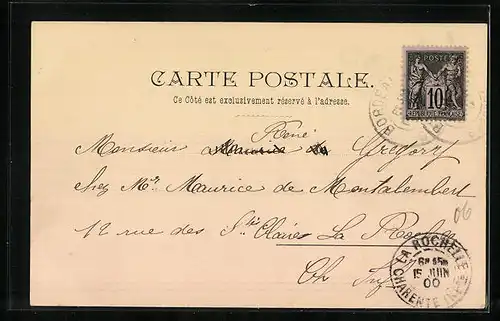 POSTES
10
REPUBLIQUE FRANÇAISE
BORDEAUX
CARTE POSTALE.
Ce Côté est exclusivement réservé à l'adresse.
René
Monsieur Maurice de Gregory
chez Mr Maurice de Montalembert
12 rue des Stes Claires La Rochelle
Ch Infre
06
LA ROCHELLE
15 JUIN
00
CHARENTE INFRE